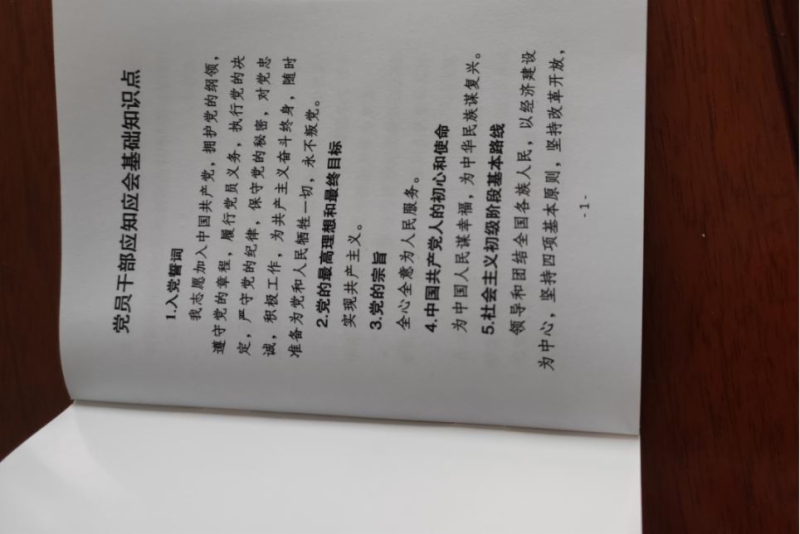 党员干部应知应会基础知识点
1.入党誓词
我志愿加入中国共产党，拥护党的纲领，
遵守党的章程，履行党员义务，执行党的决
定，严守党的纪律，保守党的秘密，对党忠
诚，积极工作，为共产主义奋斗终身，随时
准备为党和人民牺牲一切，永不叛党。
2.党的最高理想和最终目标
实现共产主义。
3.党的宗旨
全心全意为人民服务。
4.中国共产党人的初心和使命
为中国人民谋幸福，为中华民族谋复兴。
5.社会主义初级阶段基本路线
领导和团结全国各族人民，以经济建设
为中心，坚持四项基本原则，坚持改革开放，
- 1 -